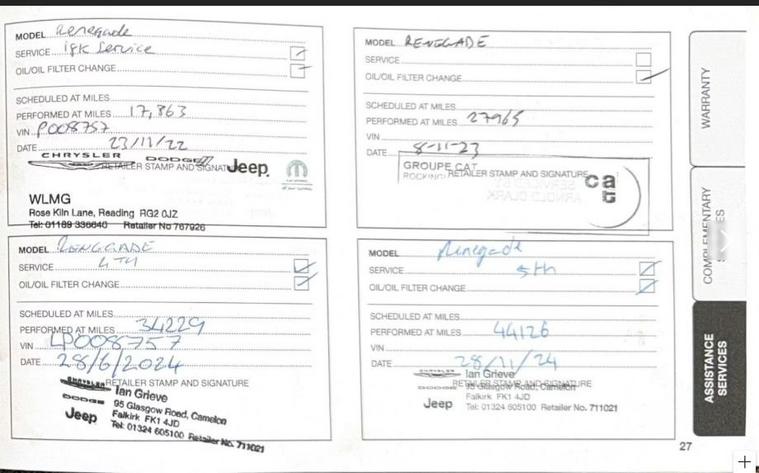 MODEL Renegade
SERVICE 18k Service
OIL/OIL FILTER CHANGE
SCHEDULED AT MILES
PERFORMED AT MILES 17,863
VIN P008757
DATE 23/11/22
CHRYSLER DODGE Jeep
RETAILER STAMP AND SIGNAT
WLMG
Rose Kiln Lane, Reading RG2 0JZ
Tel: 01189 336640 Retailer No 767926
MODEL RENEGADE
SERVICE
OIL/OIL FILTER CHANGE
SCHEDULED AT MILES
PERFORMED AT MILES 27965
VIN
DATE 8-11-23
GROUPE CAT
RETAILER STAMP AND SIGNATURE
cat
MODEL RENEGADE
SERVICE 4TH
OIL/OIL FILTER CHANGE
SCHEDULED AT MILES
PERFORMED AT MILES 34229
VIN LP008757
DATE 28/6/2024
CHRYSLER RETAILER STAMP AND SIGNATURE
Ian Grieve
DODGE 95 Glasgow Road, Camelon
Jeep Falkirk FK1 4JD
Tel: 01324 605100 Retailer No. 711021
MODEL Renegade
SERVICE 5th
OIL/OIL FILTER CHANGE
SCHEDULED AT MILES
PERFORMED AT MILES 44126
VIN
DATE 28/11/24
CHRYSLER Ian Grieve
RETAILER STAMP AND SIGNATURE
DODGE 95 Glasgow Road, Camelon
Jeep Falkirk FK1 4JD
Tel: 01324 605100 Retailer No. 711021
WARRANTY
COMPLEMENTARY
ASSISTANCE
SERVICES
27